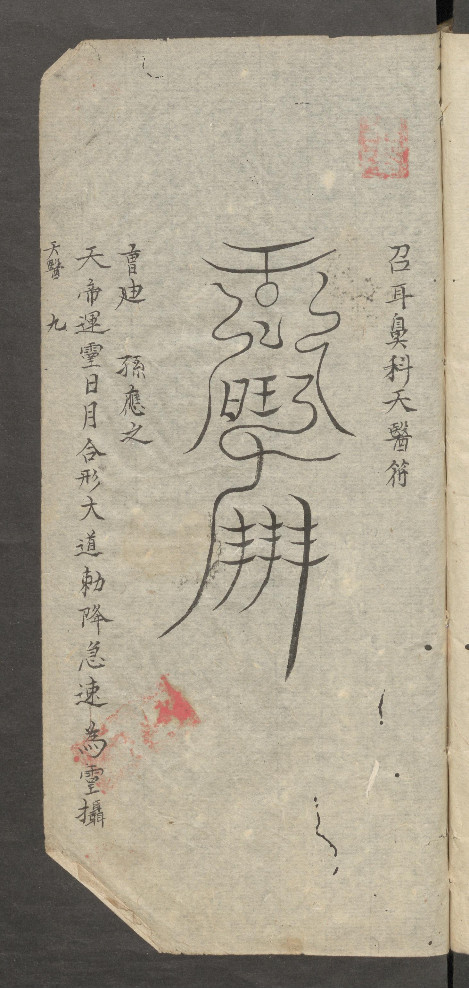 召耳鼻科天醫符
孫應之
天帝運靈日月合形大道勅降急速為靈攝
天醫 九